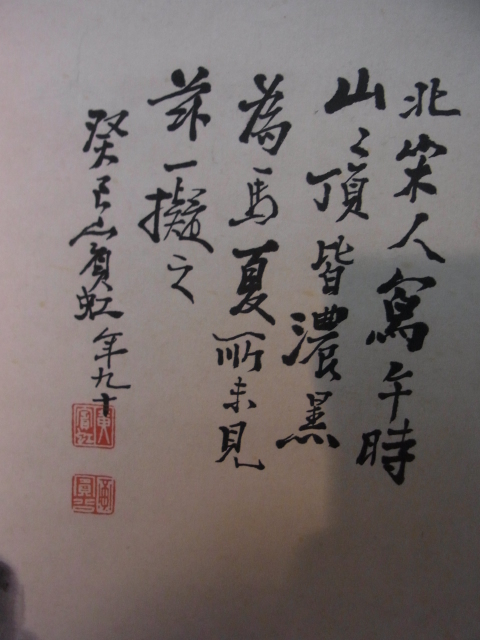 北宋人寫午時
山〻頂皆濃黑
為馬夏所未見
茲一擬之
癸巳賓虹年九十
黃賓虹